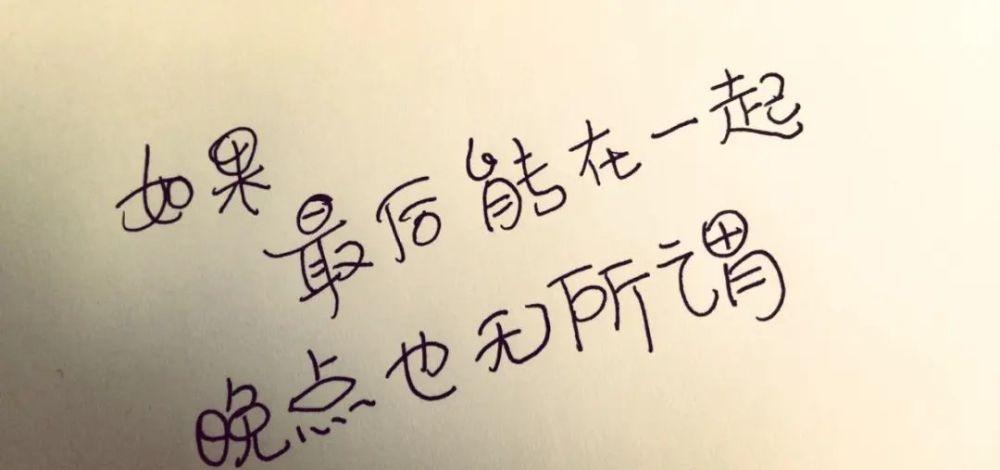 如果
最后能在一起
晚点也无所谓